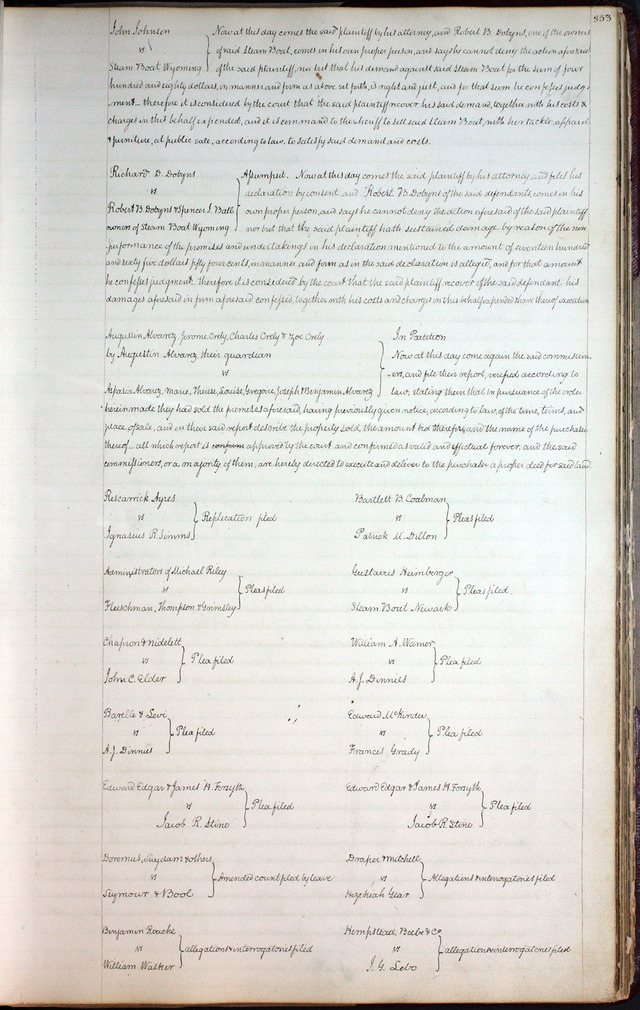 353
John Johnson
vs
Steam Boat Wyoming
Now at this day comes the said plaintiff by his attorney, and Robert B Dobyns, one of the owners
of said Steam Boat, comes in his own proper person, and says he cannot deny the action aforesaid
of the said plaintiff, nor but that his demand against said Steam Boat for the sum of four
hundred and eighty dollars, in manner and form as above set forth, is right and just, and for that sum he confesses judg-
ment therefore it is considered by the court that the said plaintiff recover his said demand, together with his costs &
charges in this behalf expended, and it is command to the sheriff to sell said Steam Boat, with her tackle, apparel
& furniture, at public sale, according to law, to satisfy said demand and costs.
Richard D. Dobyns
vs
Robert B Dobyns & Spencer J. Ball
owner of Steam Boat Wyoming
Assumpsit. Now at this day comes the said plaintiff by his attorney, and files his
declaration by consent, and Robert B Dobyns of the said defendants, comes in his
own proper person, and says he cannot deny the action aforesaid of the said plaintiff
nor but that the said plaintiff hath sustained damage by reason of the non
performance of the promises and undertakings in his declaration mentioned to the amount of seventeen hundred
and sixty five dollars fifty four cents, in manner and form as in the said declaration is alleged, and for that amount
he confesses judgment therefore it is considered by the court that the said plaintiff recover of the said defendant his
damages aforesaid in form aforesaid confessed, together with his costs and charges in this behalf expended & have thereof execution
Augustin Alvarez, Jerome Orely, Charles Orely & Zoe Orely
by Augustin Alvarez, their guardian
vs
Aspasia Alvarez, Marie, Therese, Louise, Gregoire, Joseph & Benjamin Alvarez
In Partition
Now at this day come again the said commission-
ers, and file their report, verified according to
law, stating therein that in pursuance of the order
herein made, they had sold the premises aforesaid, having previously given notice, according to law, of the time, terms, and
place of sale, and in their said report describe the property sold, the amount bid therefor, and the name of the purchaser
thereof all which report is confirm approved by the court and confirmed as valid and effectual forever, and the said
commissioners, or a majority of them, are hereby directed to execute and deliver to the purchaser a proper deed for said land
Riscarrick Ayres
vs
Ignasius R. Simms
Replication filed
Bartlett B. Coalman
vs
Patrick M. Dillon
Pleas filed
Administrators of Michael Riley
vs
Fleischman, Thompson & Grimsley
Pleas filed
Gustavus Heimberger
vs
Steam Bout Newark
Pleas filed
Chapron & Nidelett
vs
John C. Elder
Plea filed
William A. Warner
vs
A. J. Dinnies
Plea filed
Barelle & Levi
vs
A. J. Dinnies
Plea filed
Edward McKinder
vs
Francis Grady
Plea filed
Edward Edgar & James H. Forsyth
vs
Jacob R. Stine
Plea filed
Edward Edgar & James H. Forsyth
vs
Jacob R. Stine
Plea filed
Doremus, Suydam & others
vs
Seymour & Bool
Amended count filed by leave
Draper & Mitchell
vs
Hezekiah Gear
Allegations & interrogatories filed
Benjamin Roache
vs
William Walker
allegations & interrogatories filed
Hempstead, Beebe & Co
vs
J. G. Lebo
allegations & interrogatories filed